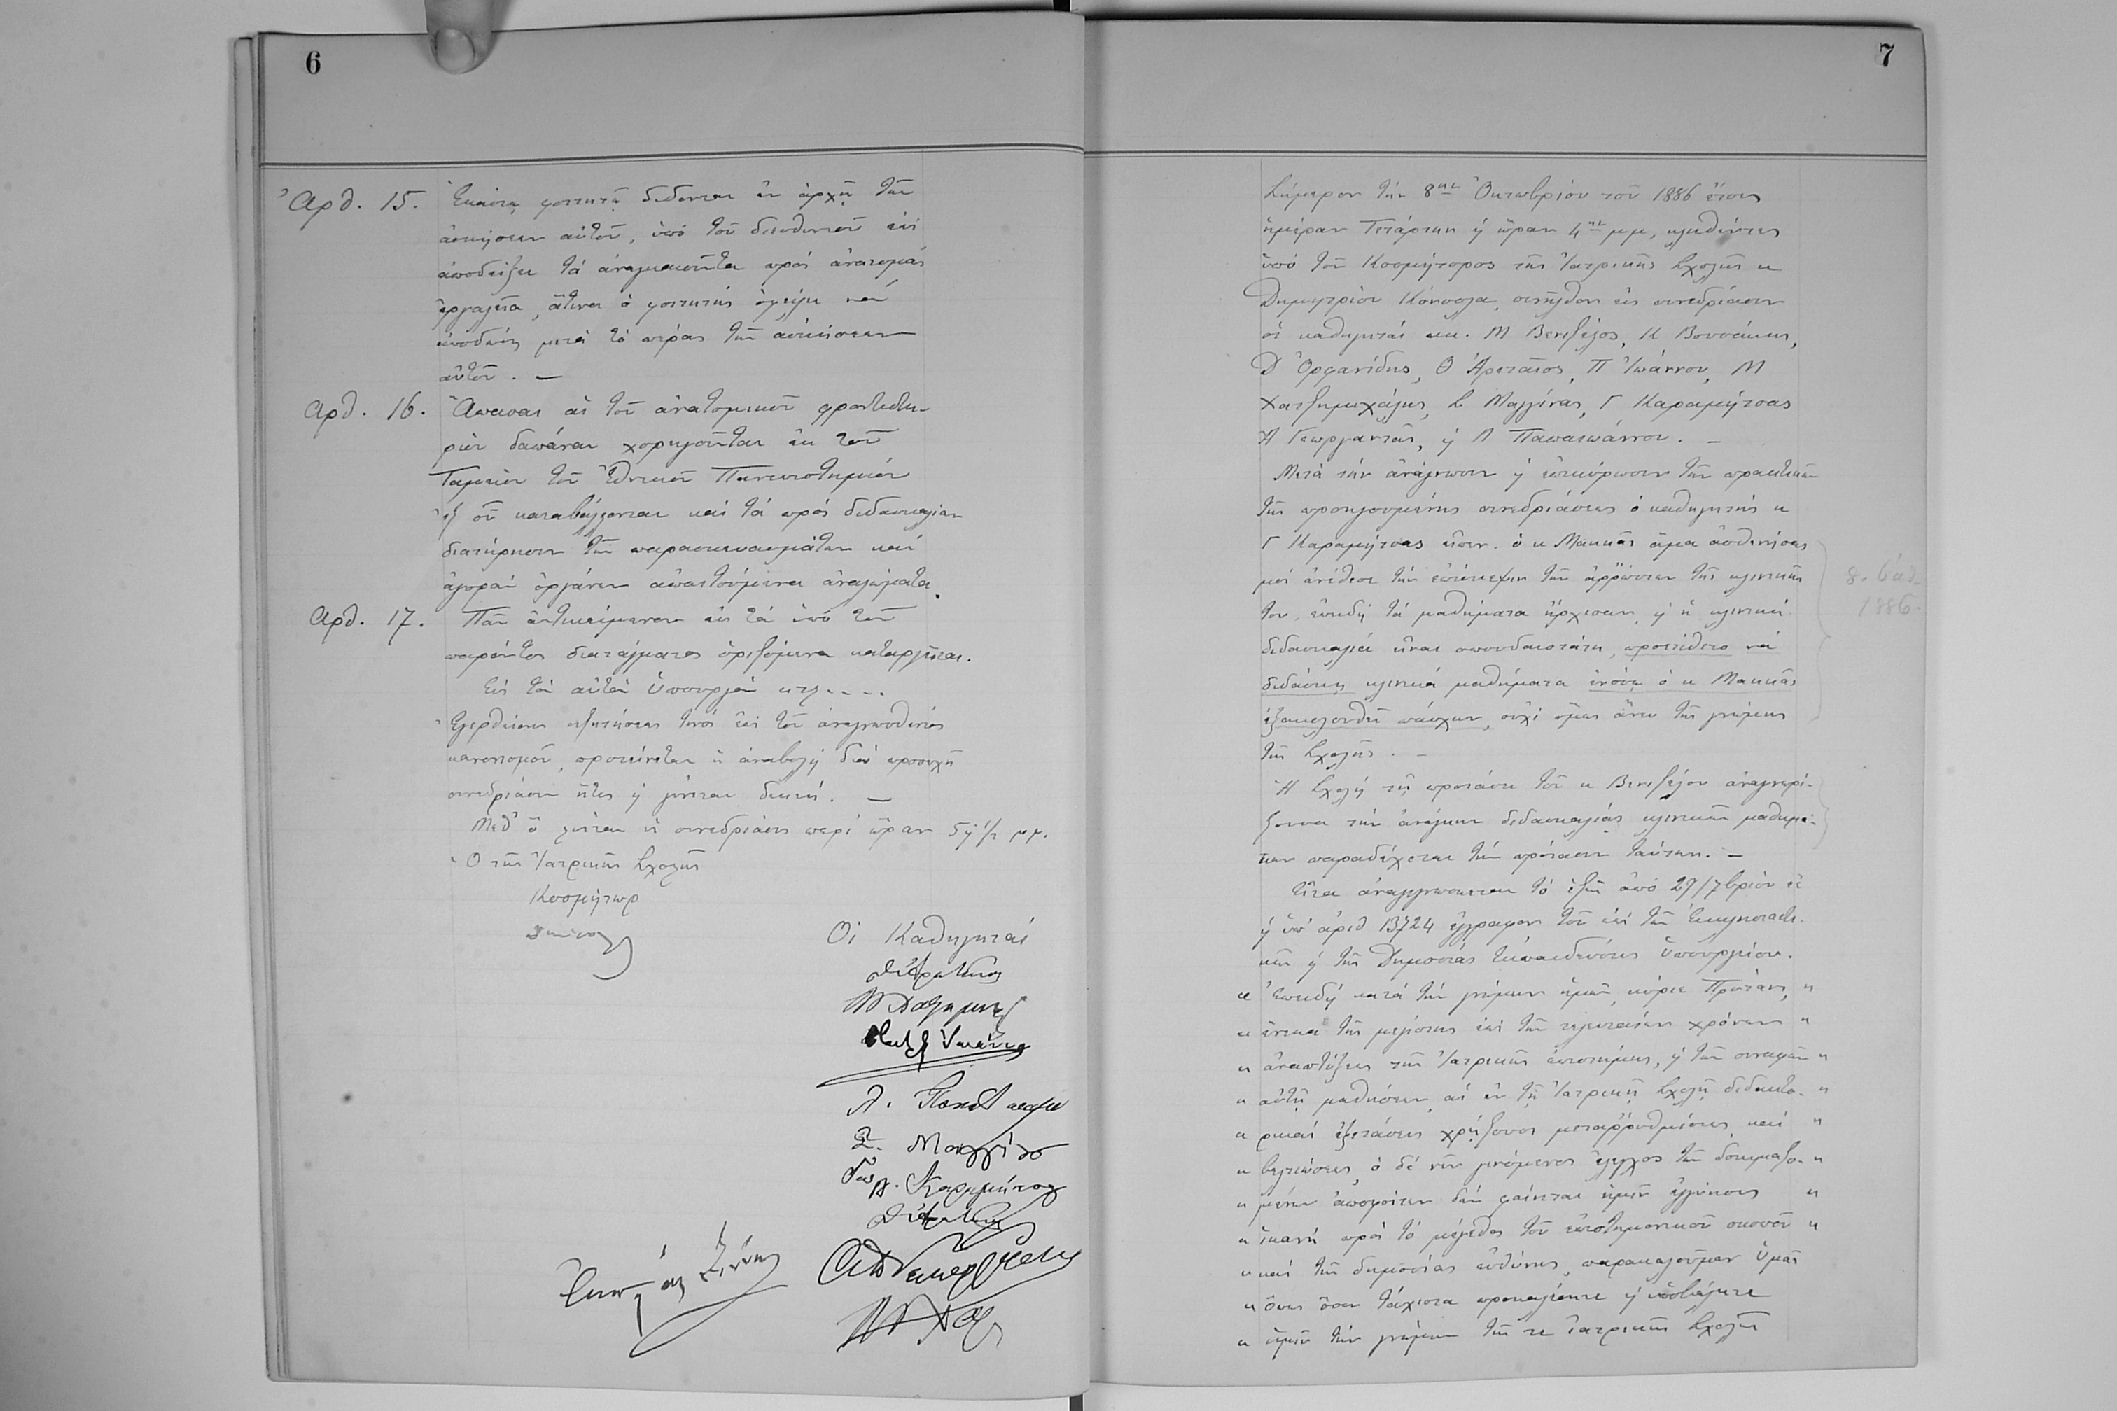 6
Ἀρθ. 15. Ἑκάστῳ φοιτητῇ δίδονται ἐν ἀρχῇ τῶν
ἀσκήσεων αὐτοῦ, ὑπὸ τοῦ διευθυντοῦ ἐπὶ
ἀποδείξει τὰ ἀναγκαιοῦντα πρὸς ἀνατομὰς
ἐργαλεῖα, ἅτινα ὁ φοιτητὴς ὀφείλει νὰ
ἀποδώσῃ μετὰ τὸ πέρας τῶν ἀσκήσεων
αὐτοῦ. —
Ἀρθ. 16. Ἅπασαι αἱ τοῦ ἀνατομικοῦ φροντιστη-
ρίου δαπάναι χορηγοῦνται ἐκ τοῦ
Ταμείου τοῦ Ἐθνικοῦ Πανεπιστημίου
ἐξ οὗ καταβάλλονται καὶ τὰ πρὸς διδασκαλίαν
διατήρησιν τῶν παρασκευασμάτων καὶ
ἀγορὰν ὀργάνων ἀπαιτούμενα ἀναλώματα.
Ἀρθ. 17. Πᾶν ἀντικείμενον εἰς τὰ ὑπὸ τοῦ
παρόντος διατάγματος ὁριζόμενα καταργεῖται.
Εἰς τὸν αὐτὸν Ὑπουργὸν κτλ....
Ἐγερθείσης συζητήσεως τινὸς ἐπὶ τοῦ ἀναγνωσθέντος
κανονισμοῦ, προτείνεται ἡ ἀναβολὴ διὰ προσεχῆ
συνεδρίασιν ἥτις ᾗ γίνεται δεκτή. —
Μεθ' ὃ λύεται ἡ συνεδρίασις περὶ ὥραν 5 ᾗ 1/2 μ.μ.
Ὁ τῆς Ἰατρικῆς Σχολῆς
Κοσμήτωρ
Οἱ Καθηγηταὶ
Σ. Μαγγίνας
Γεώρ. Καραμήτσας
7
Σήμερον τὴν 8ην Ὀκτωβρίου τοῦ 1886 ἔτους
ἡμέραν Τετάρτην ᾗ ὥραν 4ην μμ, κληθέντες
ὑπὸ τοῦ Κοσμήτορος τῆς Ἰατρικῆς Σχολῆς κ
Δημητρίου Κόκκολα, συνῆλθον εἰς συνεδρίασιν
οἱ καθηγηταὶ κκ. Μ Βενιζέλος, Κ Βουσάκης,
Δ Ὀρφανίδης, Θ Ἀρεταῖος, Π Ἰωάννου, Μ
Χατζημιχάλης, Σ Μαγγίνας, Γ Καραμήτσας
Α Γεωργαντᾶς, ᾗ Λ Παπαϊωάννου. —
Μετὰ τὴν ἀνάγνωσιν ᾗ ἐπικύρωσιν τῶν πρακτικῶν
τῆς προηγουμένης συνεδριάσεως ὁ καθηγητὴς κ
Γ Καραμήτσας εἶπεν. ὁ κ Μακκᾶς ἅμα ἀσθενήσας
μοὶ ἀνέθεσε τὴν ἐπίσκεψιν τῶν ἀρρώστων τῆς κλινικῆς
του, ἐπειδὴ τὰ μαθήματα ἤρχισαν, ᾗ ἡ κλινικὴ
διδασκαλία εἶναι σπουδαιοτάτη, προτίθεται νὰ
διδάσκῃ κλινικὰ μαθήματα ἐνόσῳ ὁ κ Μακκᾶς
ἐξακολουθεῖ πάσχων, οὐχὶ ὅμως ἄνευ τῆς γνώμης
τῆς Σχολῆς. —
8. Ὀκτ.
1886.
Ἡ Σχολὴ τῇ προτάσει τοῦ κ Βενιζέλου ἀναγνωρί-
ζουσα τὴν ἀνάγκην διδασκαλίας κλινικῶν μαθημά-
των παραδέχεται τὴν πρότασιν ταύτην. —
Εἶτα ἀναγινώσκεται τὸ ἑξῆς ἀπὸ 29/7βρίου ἐ.ἔ.
ᾗ ὑπ' ἀριθ 13724 ἔγγραφον τοῦ ἐπὶ τῶν Ἐκκλησιαστι-
κῶν ᾗ τῆς Δημοσίας Ἐκπαιδεύσεως Ὑπουργείου.
« Ἐπειδὴ κατὰ τὴν γνώμην ἡμῶν, κύριε Πρύτανι, «
« ἕνεκα τῆς μεγίστης ἐπὶ τῶν τελευταίων χρόνων «
« ἀναπτύξεως τῆς Ἰατρικῆς ἐπιστήμης, ᾗ τῶν συναφῶν «
« αὐτῇ μαθήσεων, αἱ ἐν τῇ Ἰατρικῇ Σχολῇ διδακτο- «
« ρικαὶ ἐξετάσεις χρῄζουσι μεταρρυθμίσεως καὶ «
« βελτιώσεως, ὁ δὲ νῦν γινόμενος ἔλεγχος τῶν δοκιμαζο- «
« μένων ἀποφοίτων δὲν φαίνεται ἡμῖν ἐγγύησις «
« ἱκανὴ πρὸς τὸ μέγεθος τοῦ ἐπιστημονικοῦ σκοποῦ «
« καὶ τῆς δημοσίας εὐθύνης, παρακαλοῦμεν Ὑμᾶς
« ὅπως ὅσον τάχιστα προκαλέσητε ᾗ ὑποβάλητε
« ἡμῖν τὴν γνώμην τῆς τε Ἰατρικῆς Σχολῆς